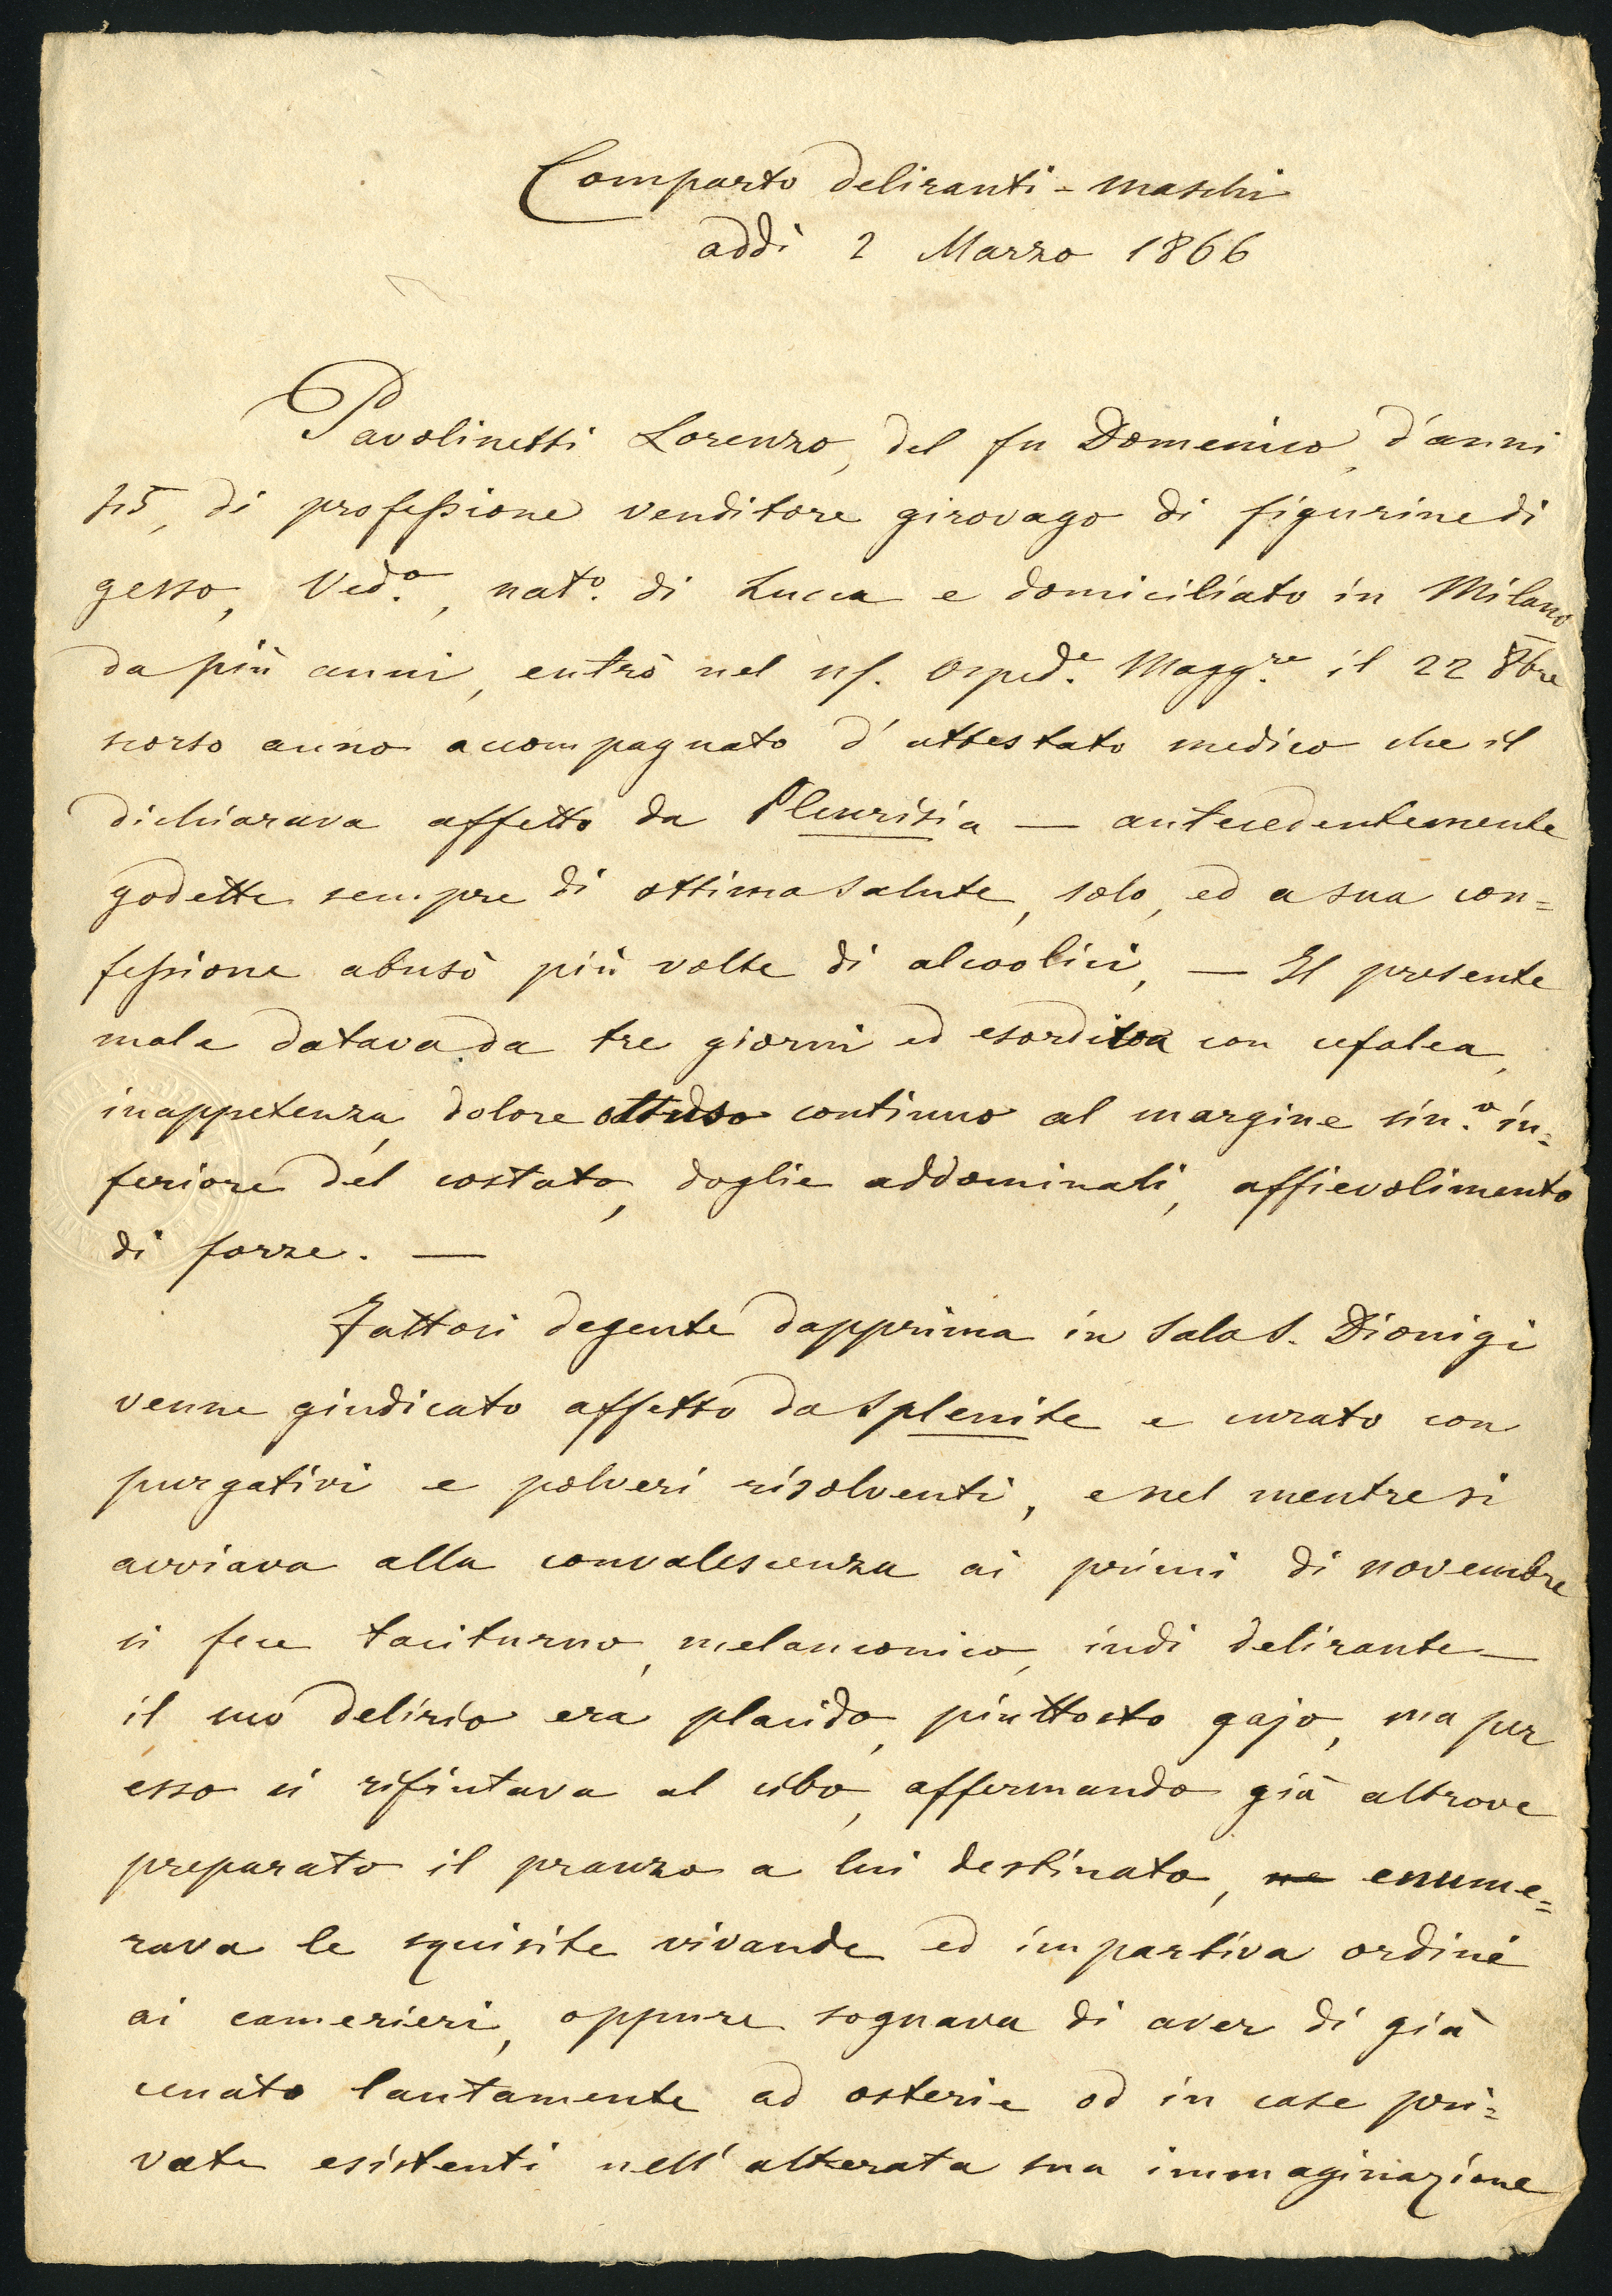 Comparto deliranti - maschi
addì 2 Marzo 1866
Pavolinetti Lorenzo, del fu Domenico, d'anni
45, di professione venditore girovago di figurine di
gesso, Ved.º, nat.º di Lucca e domiciliato in Milano
da più anni, entrò nel Osped.e Magg.re il 22 8bre
scorso anno accompagnato d'attestato medico che il
dichiarava affetto da Pleurisia — antecedentemente
godette sempre di ottima salute, solo, ed a sua con=
fessione abusò più volte di alcoolici, — Il presente
male datava da tre giorni ed esordiva con cefalea,
inappetenza, dolore ottuso continuo al margine sin.º in=
feriore del costato, doglie addominali, affievolimento
di forze. —
Fattosi degente dapprima in Sala S. Dionigi
venne giudicato affetto da Splenite e curato con
purgativi e polveri risolventi, e nel mentre si
avviava alla convalescenza ai primi di novembre
si fece taciturno, melanconico, indi delirante —
il suo delirio era placido, piuttosto gajo, ma per
esso si rifiutava al cibo, affermando già altrove
preparato il pranzo a lui destinato, ne enume=
rava le squisite vivande ed impartiva ordini
ai camerieri, oppure sognava di aver di già
cenato lautamente ad osterie od in case pri=
vate esistenti nell'alterata sua immaginazione